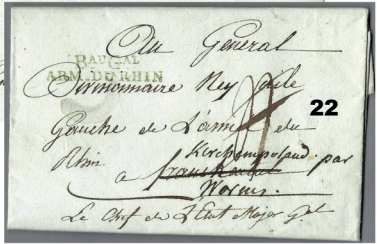 Au Général
BAU GAL
ARM. DU RHIN
Divisionnaire Ney aile
Gauche de L'armée du
Rhin
Kerchempoland par
à frankenthal
Worms.
Le Chef de L'Etat Major Gal
22